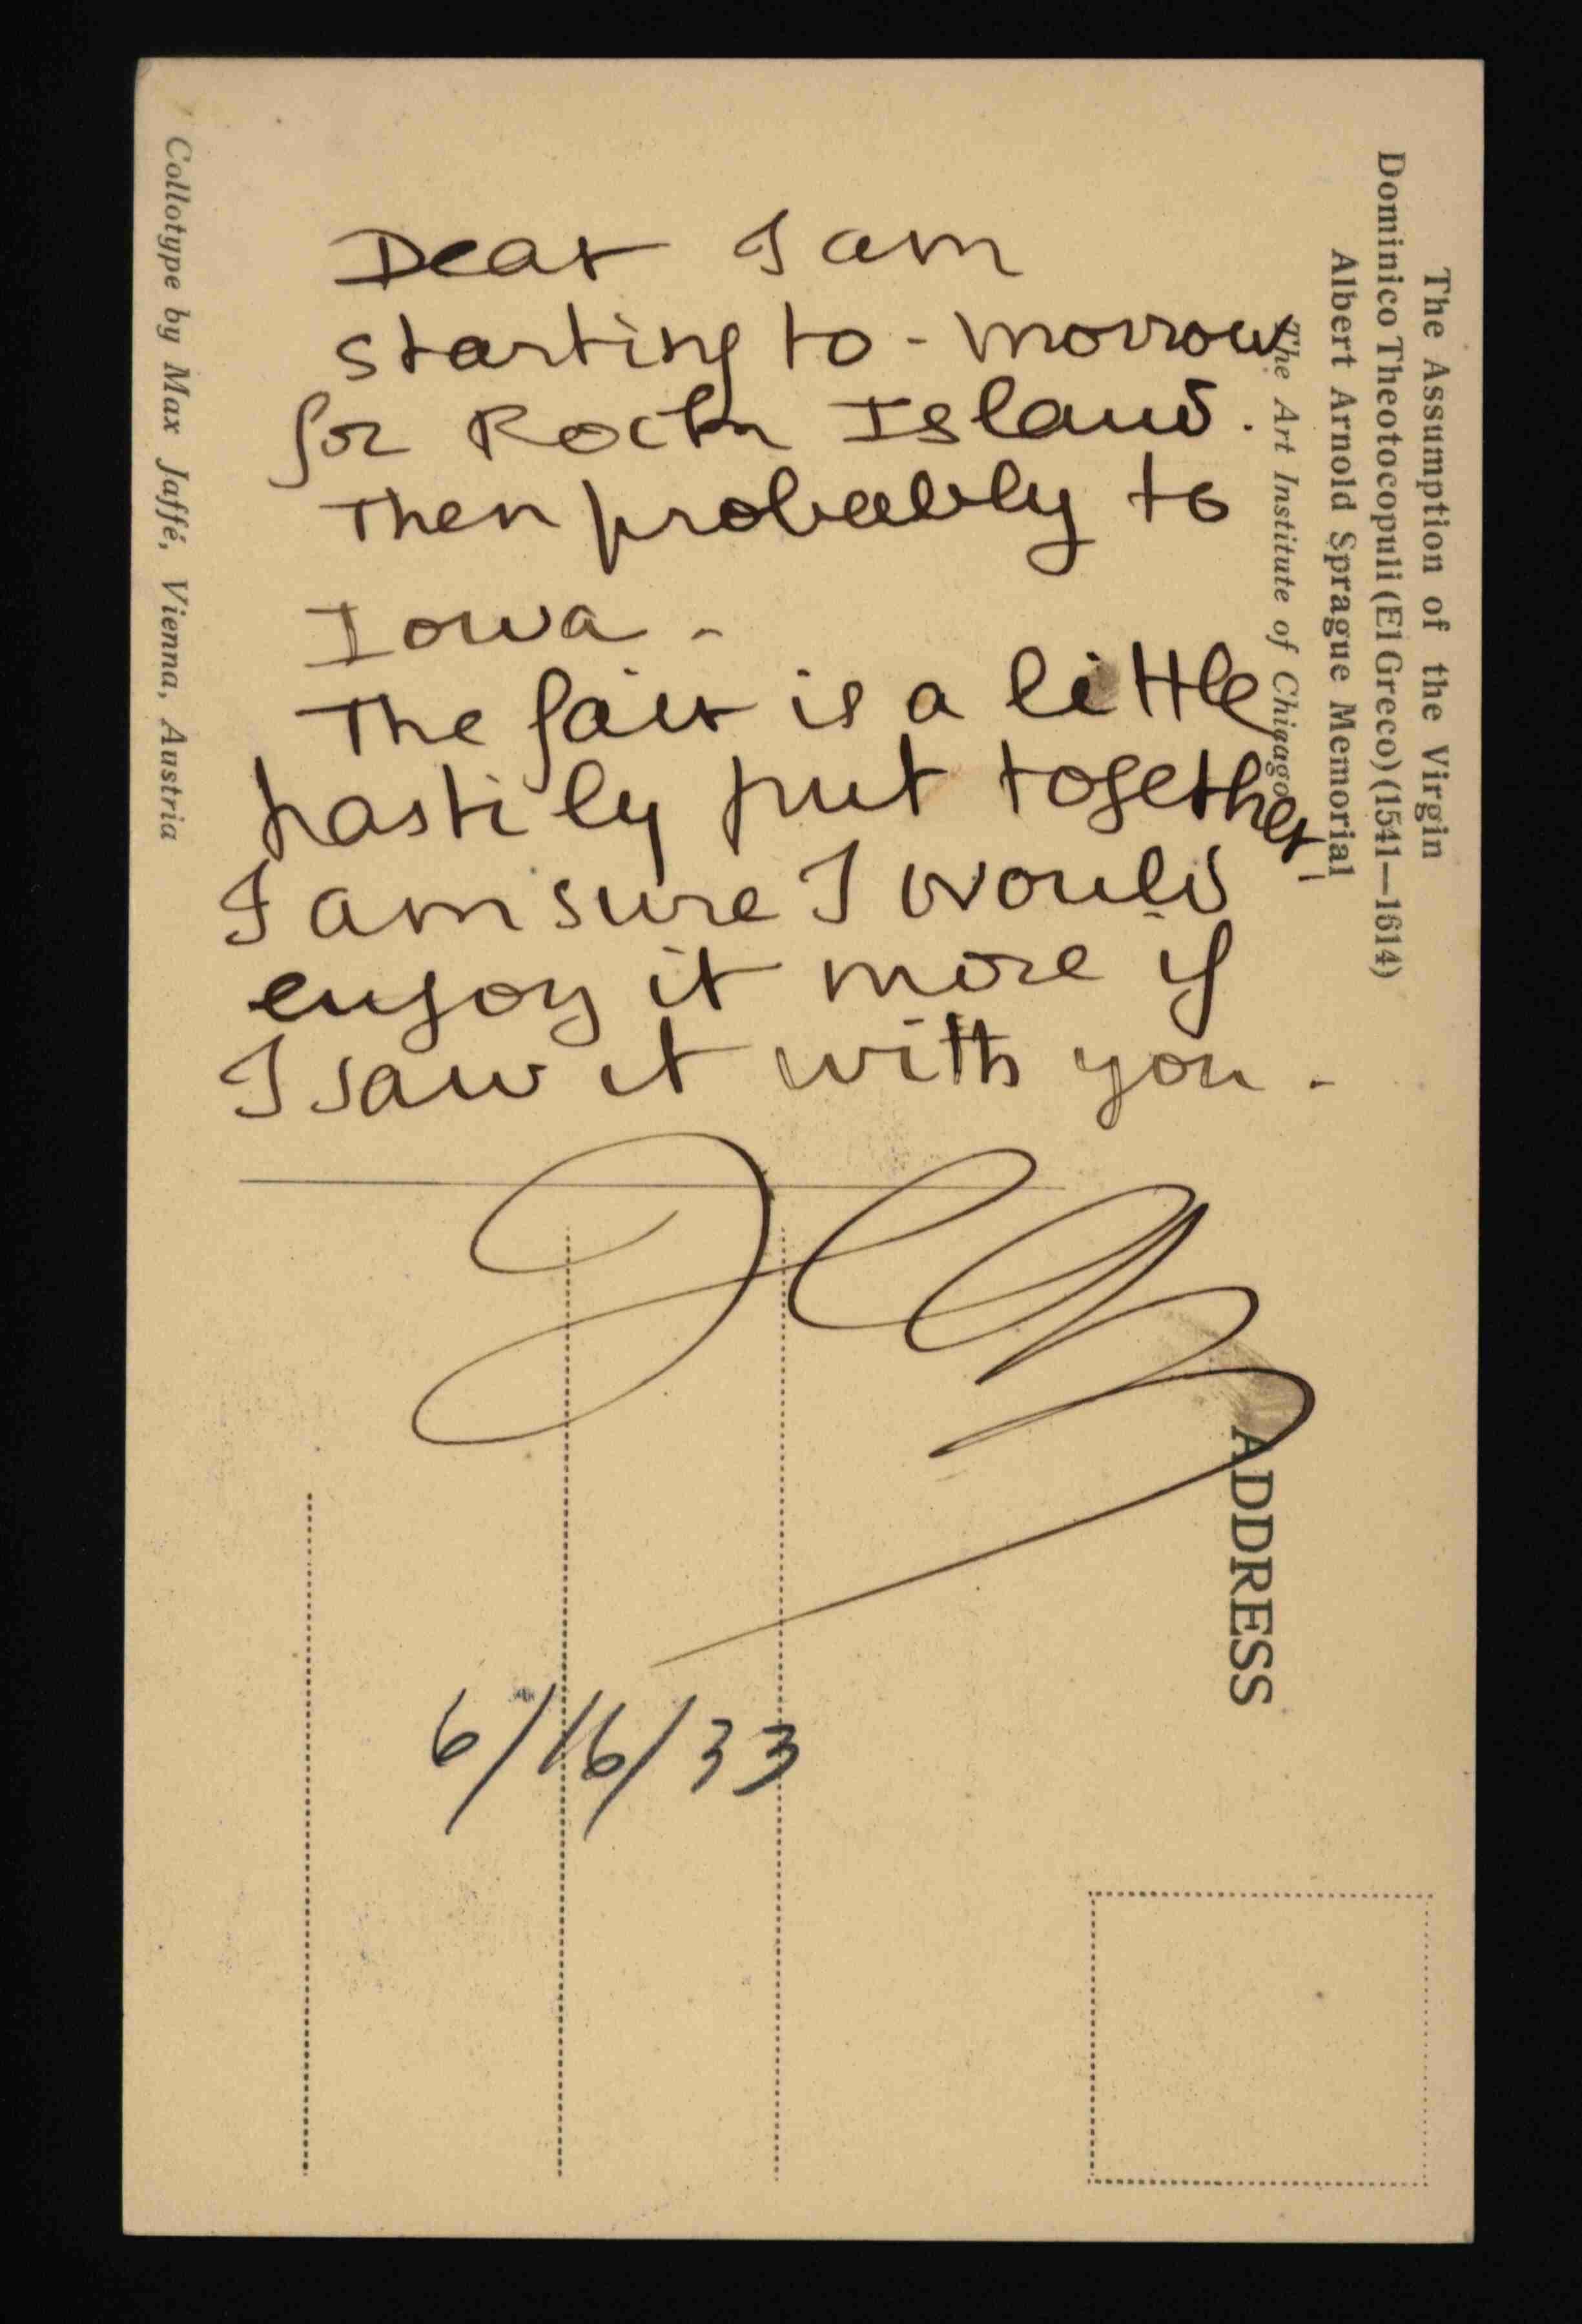 The Assumption of the Virgin
Dominico Theotocopuli (El Greco) (1541—1614)
Albert Arnold Sprague Memorial
The Art Institute of Chicago
Dear I am
starting to-morrow
for Rock Island.
Then probably to
Iowa -
The fair is a little
hastily put together -
I am sure I would
enjoy it more if
I saw it with you -
ADDRESS
6/16/33
Collotype by Max Jaffé, Vienna, Austria